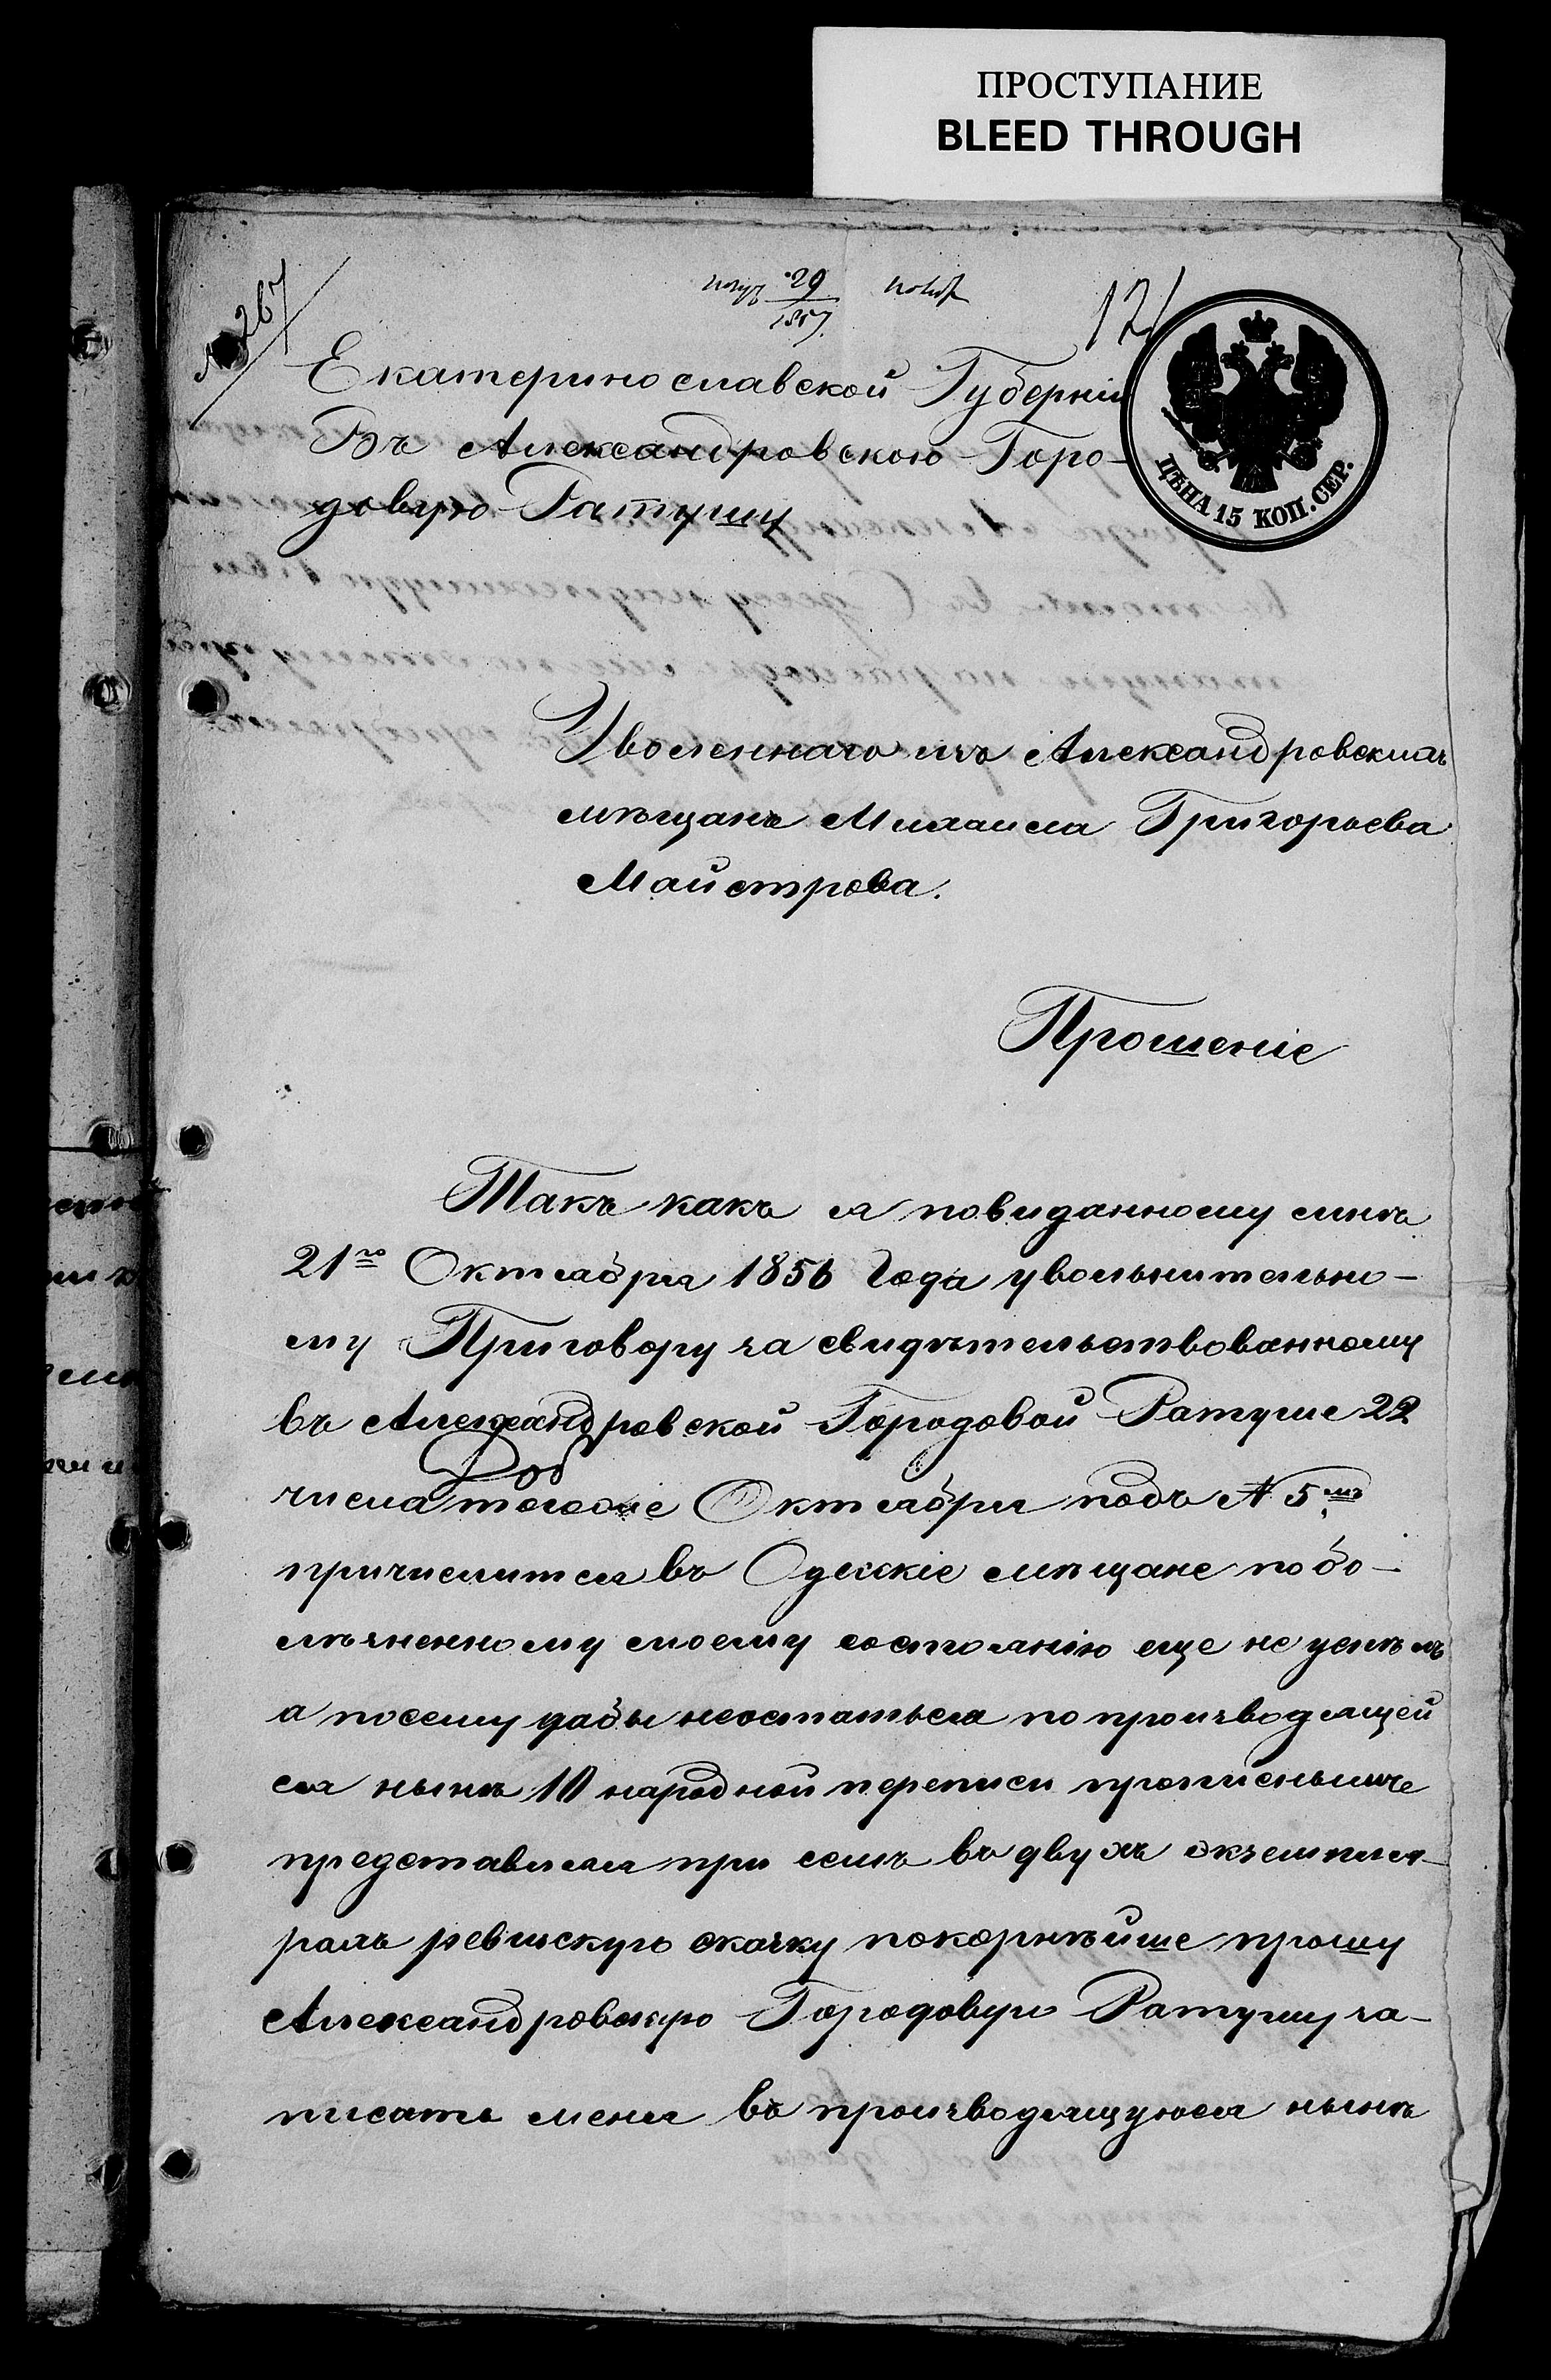 ПРОСТУПАНИЕ
BLEED THROUGH
№ 267
получ 29 нояб
1857.
121
Екатеринославской Губерніи
Въ Александровскую Горо-
довую Ратушу
ЦѢНА 15 КОП. СЕР.
Уволеннаго изъ Александровскихъ
мѣщанъ Михаила Григорьева
Майстрова.
Прошеніе
Такъ какъ я повиданному мнѣ
21го Октября 1856 Года увольнительно-
му Приговору засвидѣтельствованному
въ Александровской Городовой Ратуше 22
числа тогоже Октября подъ № 5мъ
причислится въ Одесскіе мѣщане по бо-
лѣзненному моему состоянію еще не успѣлъ
а посему дабы неостаться по производящей
ся нынѣ 10 народной переписи прописнымъ
представляя при семъ въ двухъ экземпля-
рахъ ревизскую сказку покорнѣйше прошу
Александровскую Городовую Ратушу за-
писать меня въ производящуюся нынѣ